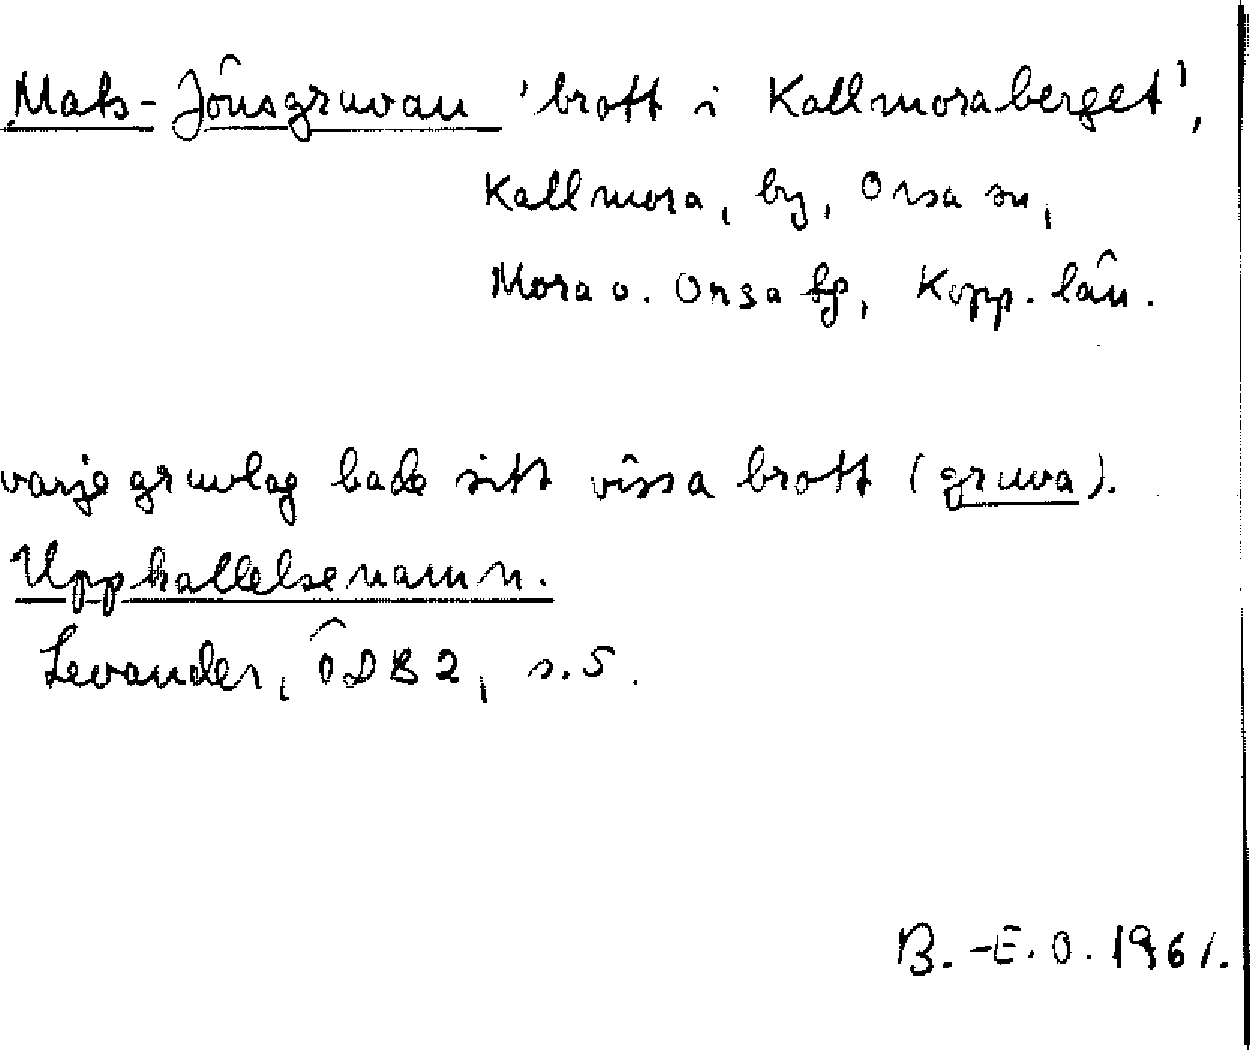 Mats-Jönsgruvan 'brott i Kallmoraberget',
Kallmora, by, Orsa sn,
Mora o. Orsa tg, Kopp. län.
varje gruvlag hade sitt vissa brott (gruva).
Upphallelsenamn.
Levander, ÖDB 2, s. 5.
B.-E. O. 1961.